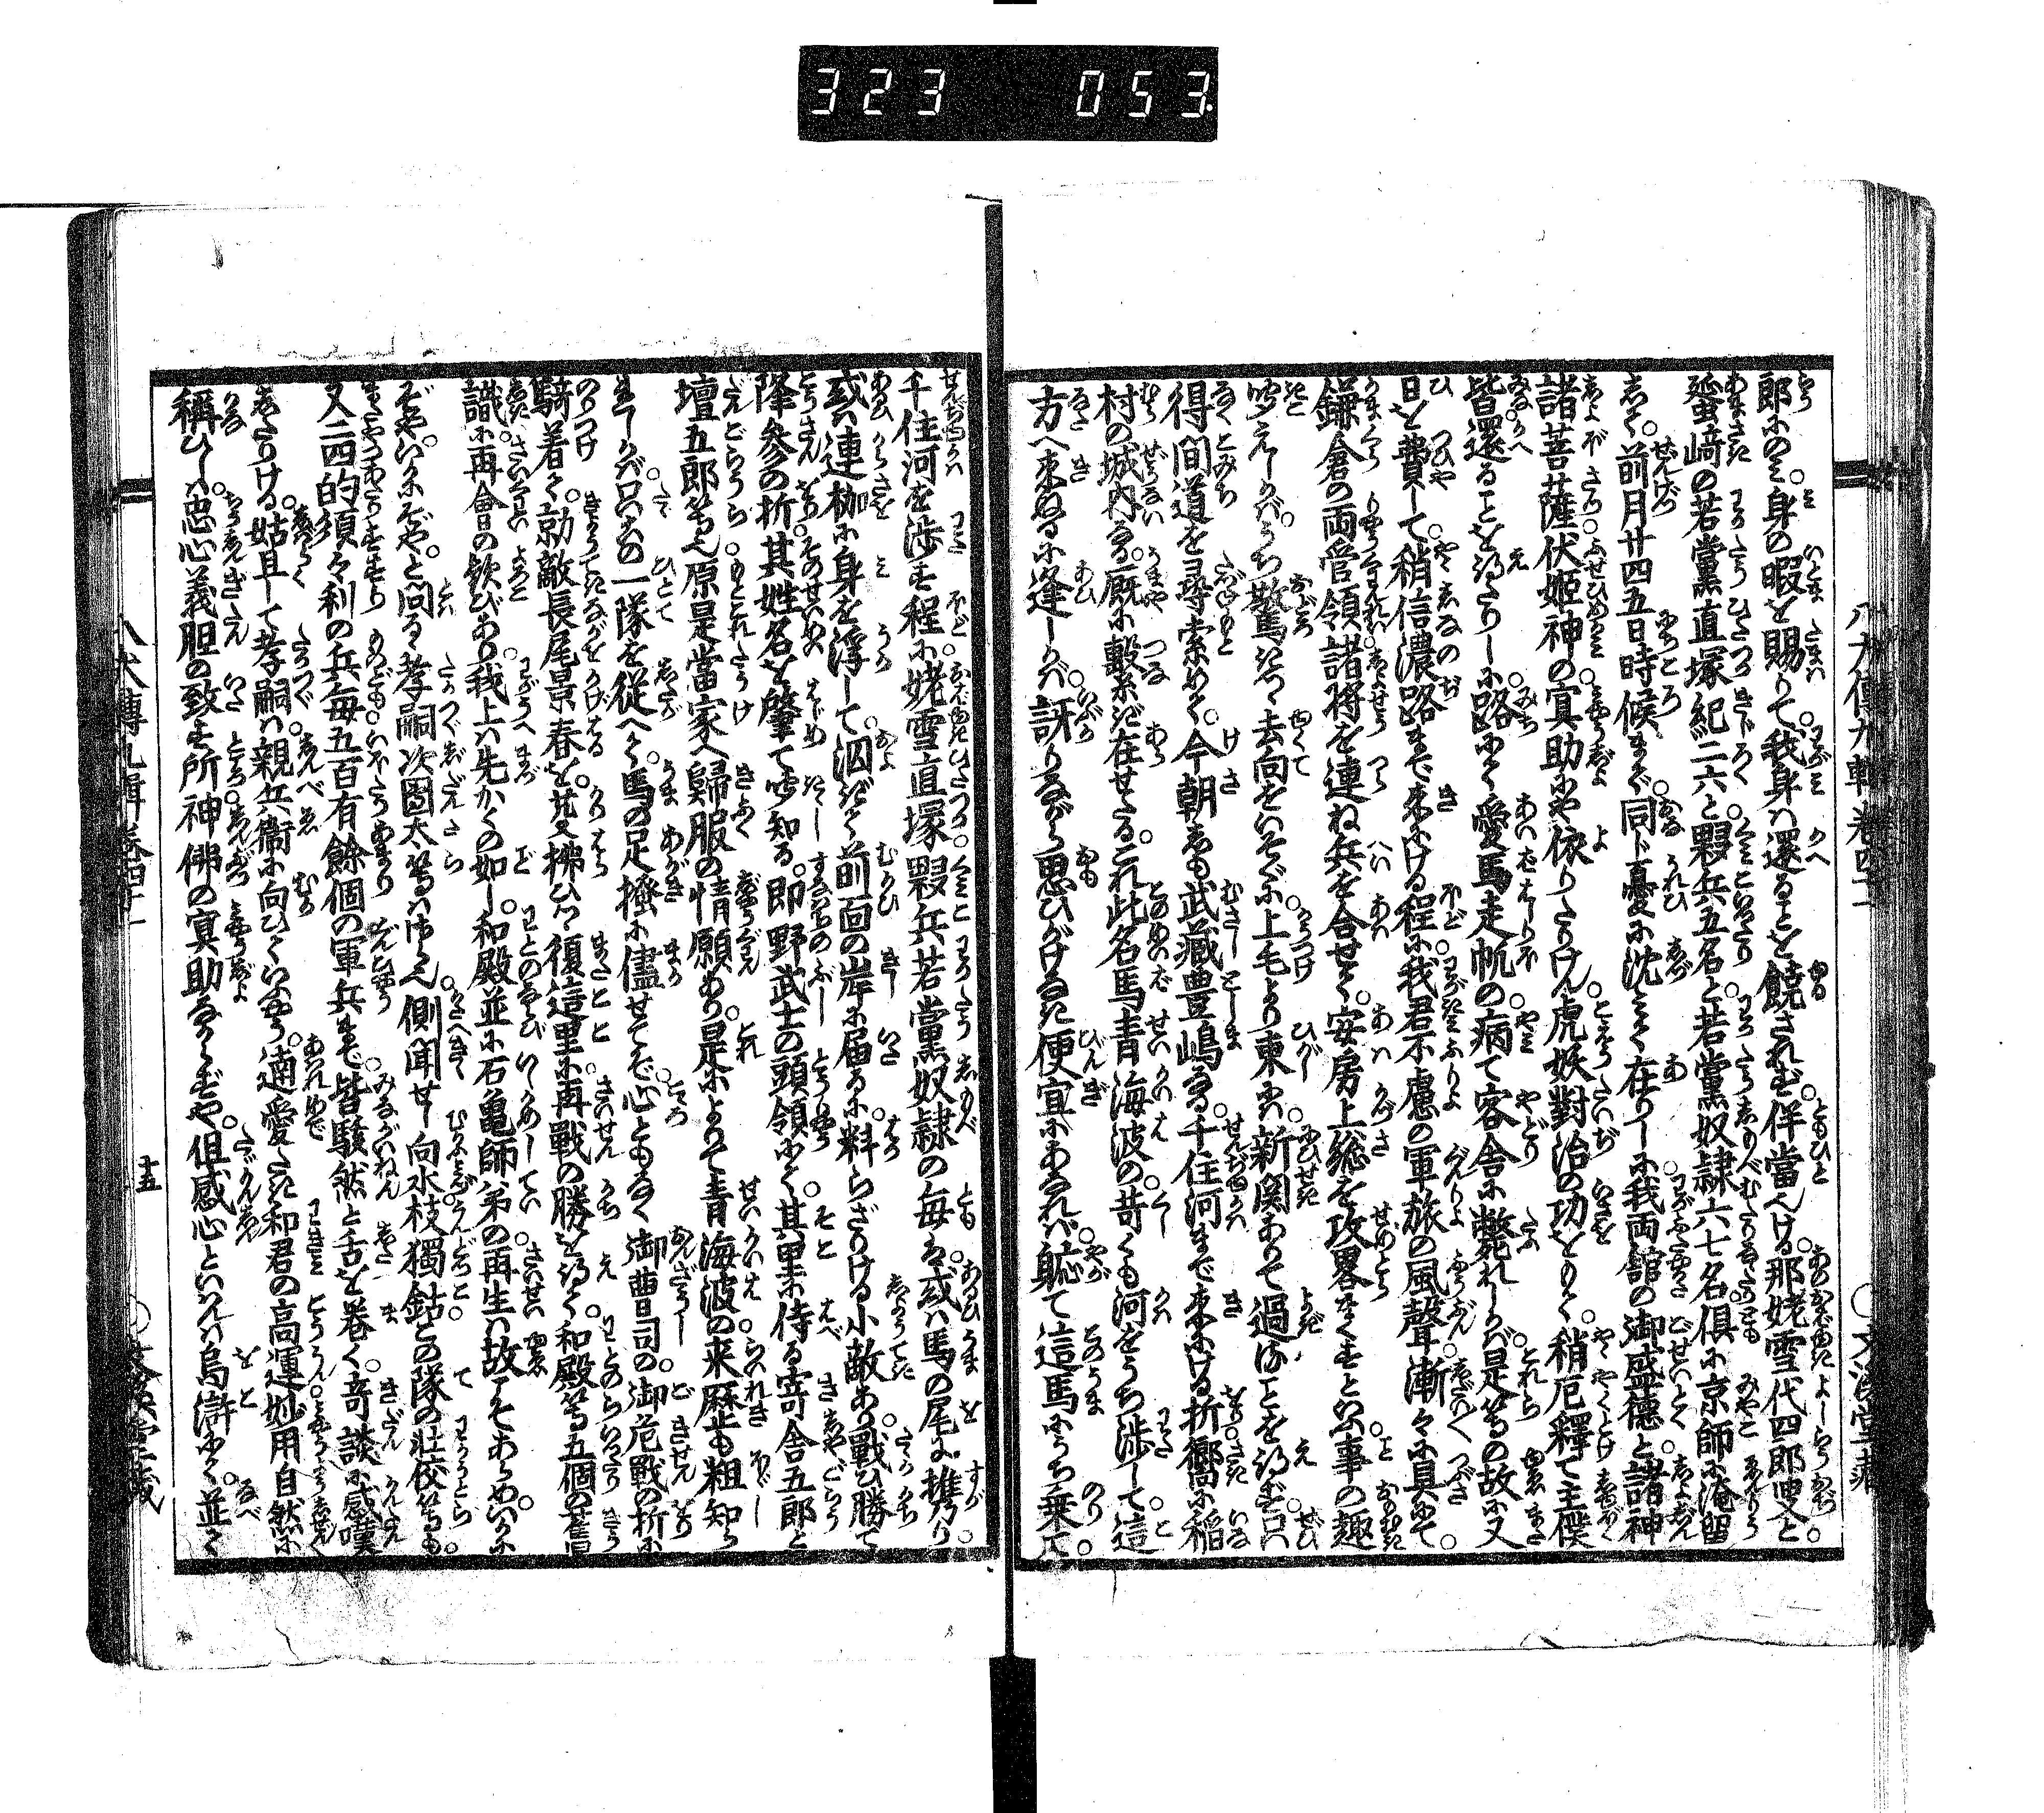 323 053
郎にのミ。身の暇を賜りて。我身ハ還ることを饒されず。伴當へける。那姥雪代四郎叟と。
蜑﨑の若黨直塚紀二六と。夥兵五名と。若黨奴隷六七名。倶に京師に淹留
して。前月廿四五日時候まで。同ド憂に沈ミて在りしに。我両舘の御盛徳と。諸神
諸菩薩伏姫神の冥助にや依りたりけん。虎妖對治の功をもて。稍厄釋て主僕
皆還ることを得たりしに。路にて愛馬走帆の病て客舎に斃れしかバ。是等の故に又
日を費して。稍信濃路まで来にける程に。我君不慮の軍旅の風聲。漸々に具にて。
鎌倉の両管領。諸將を連ね兵を合せて。安房上総を攻畧まくすといふ事の趣
聞えしかバ。うち驚きつゝ去向をいそぐに。上毛より東にハ。新関ありて過ることを得ず。只
得間道を尋索めて。今朝しも武藏豊嶋なる。千住河まで来にける折。郷に稲
村の城内なる。厩に繋ぎ在せたる。これ此名馬青海波の。苛くも河をうち渉して。這
方へ来ぬるに逢しかバ。訝りながら思ひがけなき便宜にあなれバ。軈て這馬にうち乗て。
八犬傳九輯巻四十二
○文溪堂藏
千住河を渉す程に。姥雪直塚。夥兵若黨奴隷の毎も。或ハ馬の尾に携り。
或ハ連枷に身を浮して。泅ぎて前面の岸に届るに。料らざりける小敵あり。戦ひ勝て
降參の折。其姓名を肇て聞知る。即野武士の頭領にて。其里に侍る寄舎五郎と
壇五郎等ハ。原是當家へ歸服の情願あり。是によりて青海波の。来歴も粗知ら
れしかバ。只その一隊を從へて。馬の足掻に儘せてぞ。心ともなく御曹司の。御危戦の折に
騎着て。勍敵長尾景春を。芟拂ひつ復這里に。再戦の勝を得て。和殿等五個の舊
識に。再會の歓びあり。我上ハ先かくの如し。和殿並に石亀師弟の。再生ハ故こそあらめ。いかに
ぞや。いかにぞや。と問る孝嗣次團太等ハさらなり。側聞せし向水枝獨鈷との隊の壮佼等も。
又二四的須々利の兵毎。五百有餘個の軍兵まで。皆駭然と舌を巻く。奇談に感嘆
したりける。姑且して孝嗣ハ。親兵衛に向ひていふやう。遖愛たき和君の高運。妙用自然に
稱ひしハ。忠心義胆の致す所。神佛の冥助ならずや。但感心といハんハ烏滸にて。並々
八犬傳九輯巻四十二
十五
○文溪堂藏